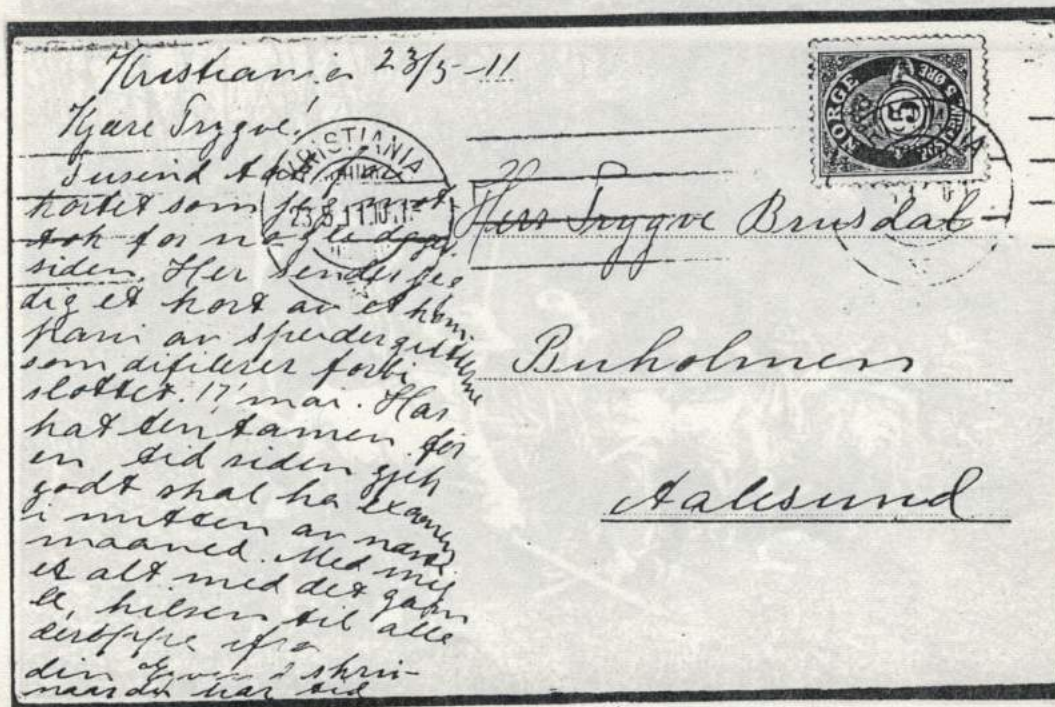 Kristiania 23/5-11
Kjære Trygve!
Tusend tak
kortet som jeg mot-
tok for nogle dage
siden. Her sender jeg
dig et kort av et kom
pani av speidergutterne
som difilerer forbi
slottet. 17 mai. Har
hat tentamen for
en tid siden gjik
godt skal ha examen
i mitten av næste
maaned. Med mig
er alt med det gam
le, hilsen til alle
deroppe ifra
din skriv
naar du har tid
KRISTIANIA
23.5.11.10
NORGE
5
5 ØRE
Herr Trygve Brusdal
Buholmen
Aalesund